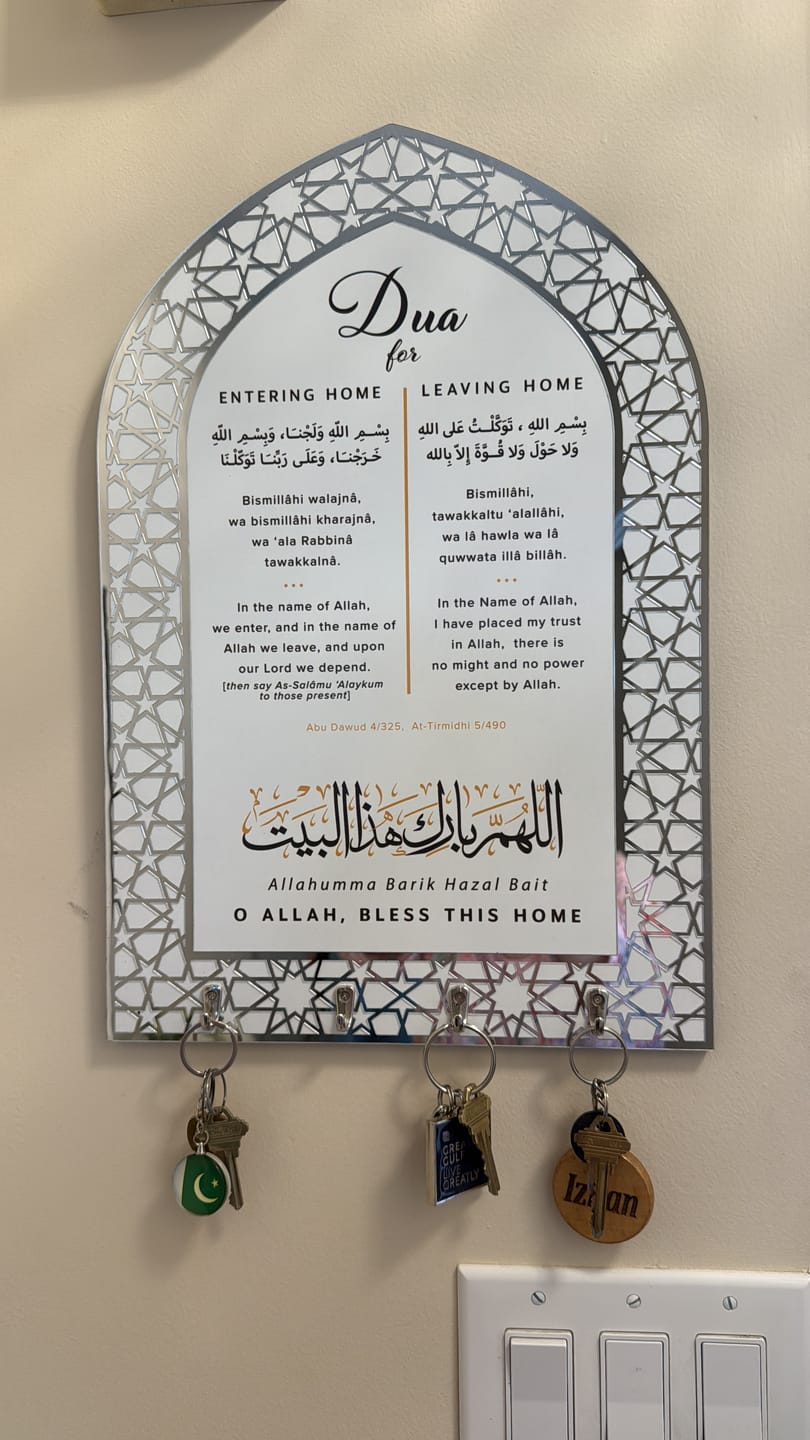 Dua
for
ENTERING HOME
بِسْمِ اللّهِ وَلَجْنَـا، وَبِسْمِ اللّهِ
خَـرَجْنَـا، وَعَلَـى رَبِّنَـا تَوَكّلْنَا
Bismillâhi walajnâ,
wa bismillâhi kharajnâ,
wa ‘ala Rabbinâ
tawakkalnâ.
In the name of Allah,
we enter, and in the name of
Allah we leave, and upon
our Lord we depend.
[then say As-Salâmu ‘Alaykum
to those present]
LEAVING HOME
بِسْمِ اللهِ ، تَوَكَّلْـتُ عَلى اللهِ
وَلا حَوْلَ وَلا قُـوَّةَ إِلاّ بِالله
Bismillâhi,
tawakkaltu ‘alallâhi,
wa lâ hawla wa lâ
quwwata illâ billâh.
In the Name of Allah,
I have placed my trust
in Allah, there is
no might and no power
except by Allah.
Abu Dawud 4/325, At-Tirmidhi 5/490
اللّهُمَّ بَارِكْ هَذَا البَيْت
Allahumma Barik Hazal Bait
O ALLAH, BLESS THIS HOME
GREAT
GULF
LIVE
GREATLY